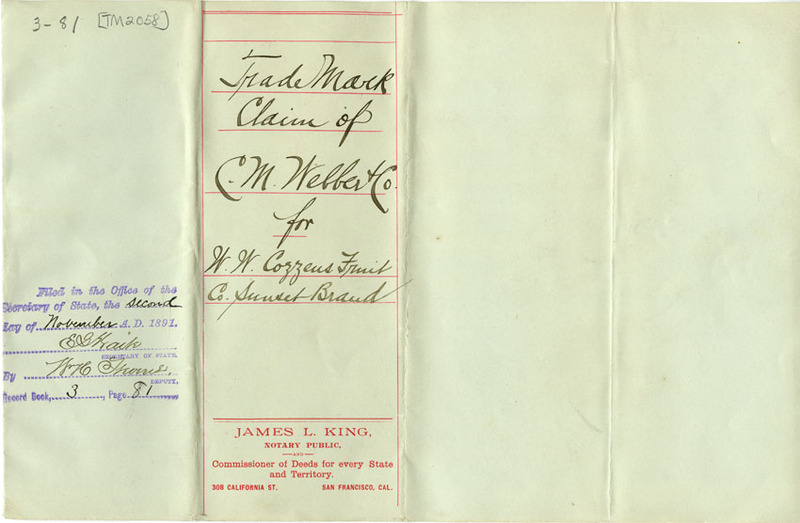 3-81 [TM2058]
Trade Mark
Claim of
C. M. Webber & Co.
for
W. W. Cozzens Fruit
Co. Sunset Brand
Filed in the Office of the
Secretary of State, the second
day of November A. D. 1891.
E G Waite
SECRETARY OF STATE.
By W H
DEPUTY,
Record Book, 3, Page 81
JAMES L. KING,
NOTARY PUBLIC,
AND
Commissioner of Deeds for every State
and Territory.
308 CALIFORNIA ST. SAN FRANCISCO, CAL.